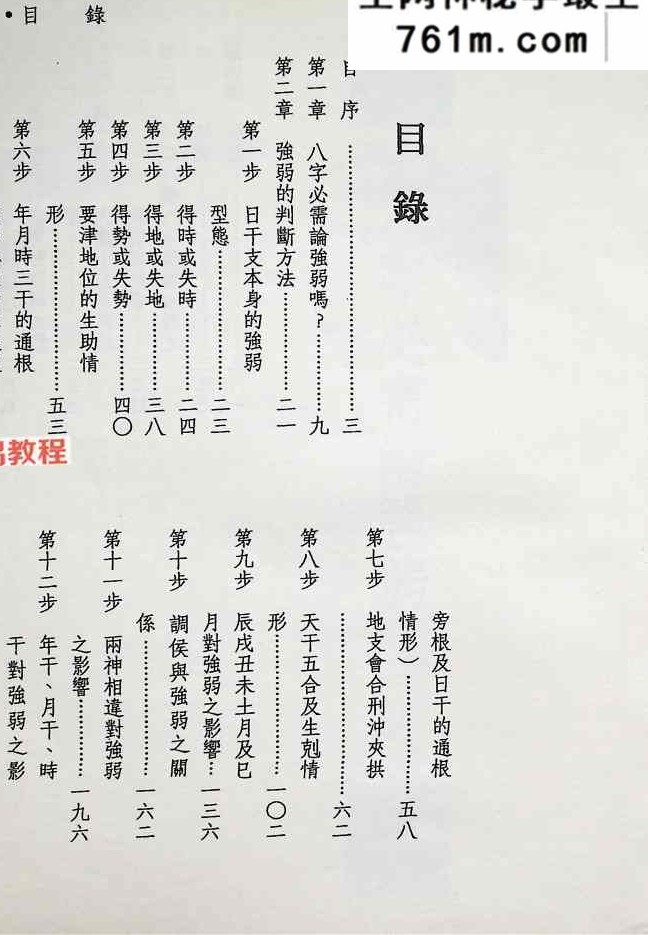 761m.com
•目　錄
目錄
自序……三
第一章　八字必需論強弱嗎？……九
第二章　強弱的判斷方法……二一
第一步　日干支本身的強弱
型態……二三
第二步　得時或失時……二四
第三步　得地或失地……三八
第四步　得勢或失勢……四〇
第五步　要津地位的生助情
形……五三
第六步　年月時三干的通根
教程
旁根及日干的通根
情形）……五八
第七步　地支會合刑沖夾拱
……六二
第八步　天干五合及生剋情
形……一〇二
第九步　辰戌丑未土月及巳
月對強弱之影響…一三六
第十步　調侯與強弱之關
係……一六二
第十一步　兩神相違對強弱
之影響……一九六
第十二步　年干、月干、時
干對強弱之影